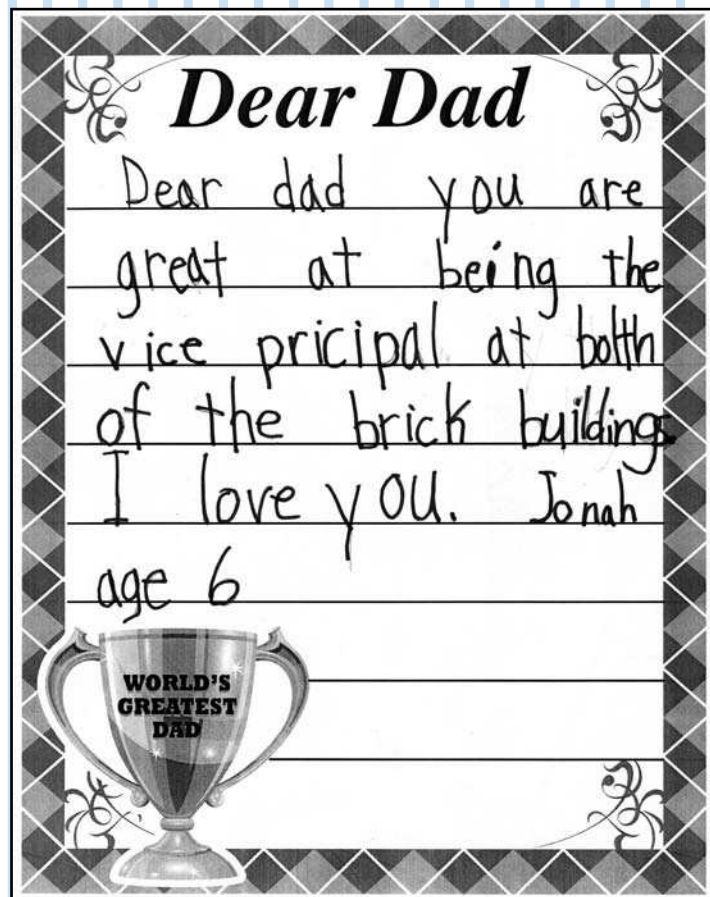 Dear Dad
Dear dad you are
great at being the
vice pricipal at bolth
of the brick buildings.
I love you. Jonah
age 6
WORLD'S
GREATEST
DAD